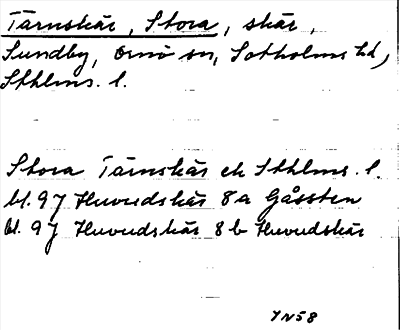 Tärnskär, Stora, skär,
Sundby, Ornö sn, Sotholms hd,
Sthlms. l.
Stora Tärnskär ek Sthlms. l.
bl. 97 Huvudskär 8a Gåssten
bl. 97 Huvudskär 8b Huvudskär
JN58